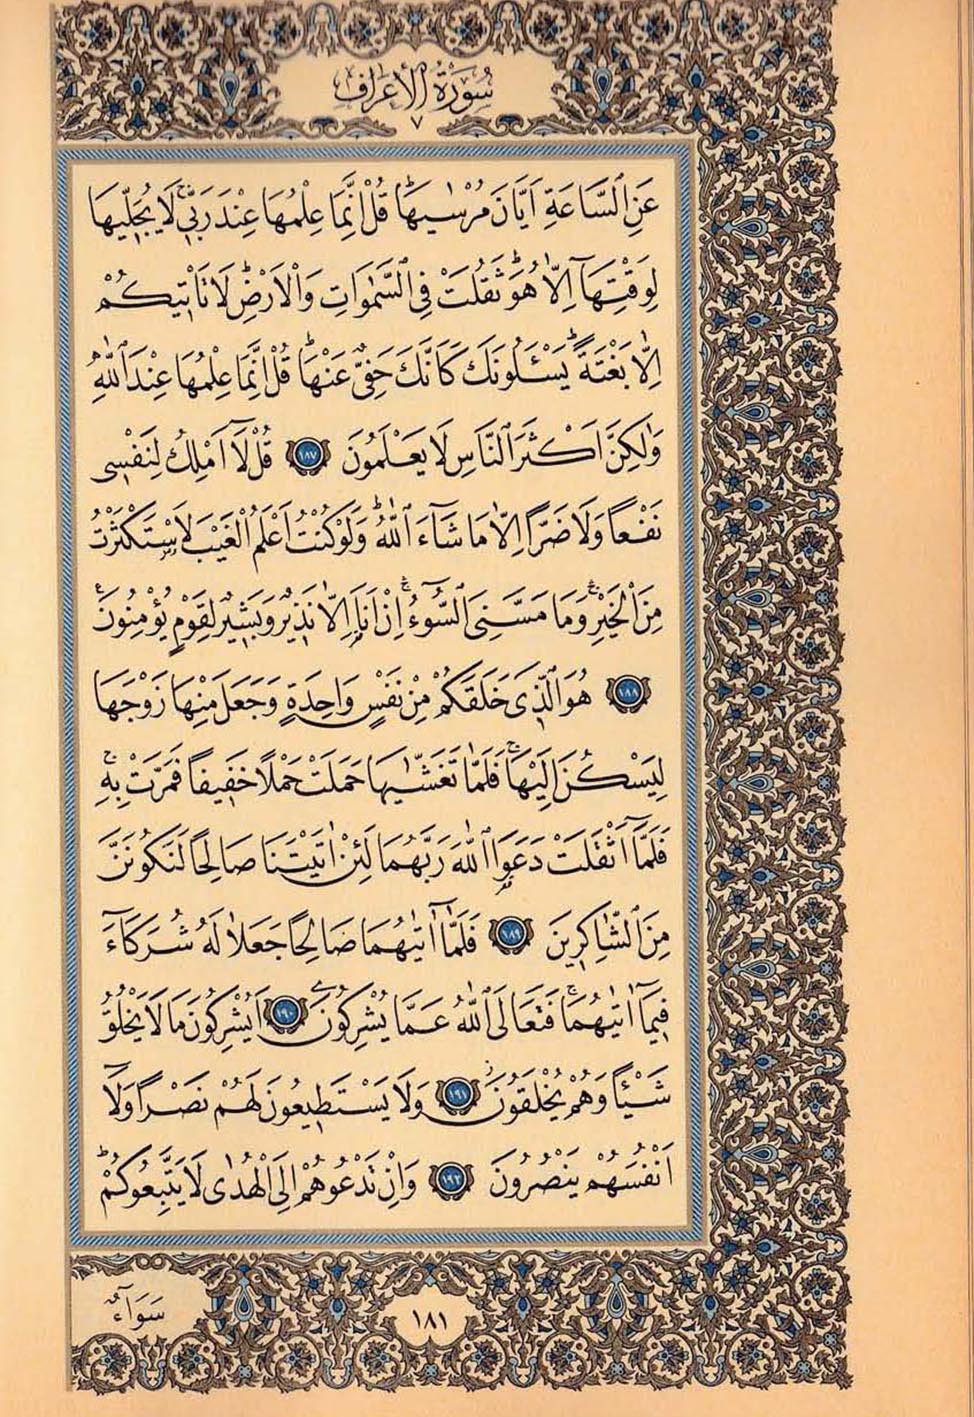 سُورَةُ الْأَعْرَافِ
٧
عَنِ السَّاعَةِ اَيَّانَ مُرْسٰيهَاۜ قُلْ اِنَّمَا عِلْمُهَا عِنْدَ رَبّ۪يۚ لَا يُجَلّ۪يهَا
لِوَقْتِهَٓا اِلَّا هُوَۜ ثَقُلَتْ فِي السَّمٰوَاتِ وَالْاَرْضِۜ لَا تَأْت۪يكُمْ
اِلَّا بَغْتَةًۜ يَسْـَٔلُونَكَ كَاَنَّكَ حَفِيٌّ عَنْهَاۜ قُلْ اِنَّمَا عِلْمُهَا عِنْدَ اللّٰهِ
وَلٰكِنَّ اَكْثَرَ النَّاسِ لَا يَعْلَمُونَ ﴿١٨٧﴾ قُلْ لَٓا اَمْلِكُ لِنَفْس۪ي
نَفْعًا وَلَا ضَرًّا اِلَّا مَا شَٓاءَ اللّٰهُۜ وَلَوْ كُنْتُ اَعْلَمُ الْغَيْبَ لَاسْتَكْثَرْتُ
مِنَ الْخَيْرِۚ وَمَا مَسَّنِيَ السُّٓوءُۚ اِنْ اَنَا۬ اِلَّا نَذ۪يرٌ وَبَش۪يرٌ لِقَوْمٍ يُؤْمِنُونَ۟
﴿١٨٨﴾ هُوَ الَّذ۪ي خَلَقَكُمْ مِنْ نَفْسٍ وَاحِدَةٍ وَجَعَلَ مِنْهَا زَوْجَهَا
لِيَسْكُنَ اِلَيْهَاۚ فَلَمَّا تَغَشّٰيهَا حَمَلَتْ حَمْلًا خَف۪يفًا فَمَرَّتْ بِه۪ۚ
فَلَمَّٓا اَثْقَلَتْ دَعَوَا اللّٰهَ رَبَّهُمَا لَئِنْ اٰتَيْتَنَا صَالِحًا لَنَكُونَنَّ
مِنَ الشَّاكِر۪ينَ ﴿١٨٩﴾ فَلَمَّٓا اٰتٰيهُمَا صَالِحًا جَعَلَا لَهُ شُرَكَٓاءَ
ف۪يمَٓا اٰتٰيهُمَاۚ فَتَعَالَى اللّٰهُ عَمَّا يُشْرِكُونَ ﴿١٩٠﴾ اَيُشْرِكُونَ مَا لَا يَخْلُقُ
شَيْـًٔا وَهُمْ يُخْلَقُونَۘ ﴿١٩١﴾ وَلَا يَسْتَط۪يعُونَ لَهُمْ نَصْرًا وَلَٓا
اَنْفُسَهُمْ يَنْصُرُونَ ﴿١٩٢﴾ وَاِنْ تَدْعُوهُمْ اِلَى الْهُدٰى لَا يَتَّبِعُوكُمْۜ
١٨١
سَوَٓاءٌ